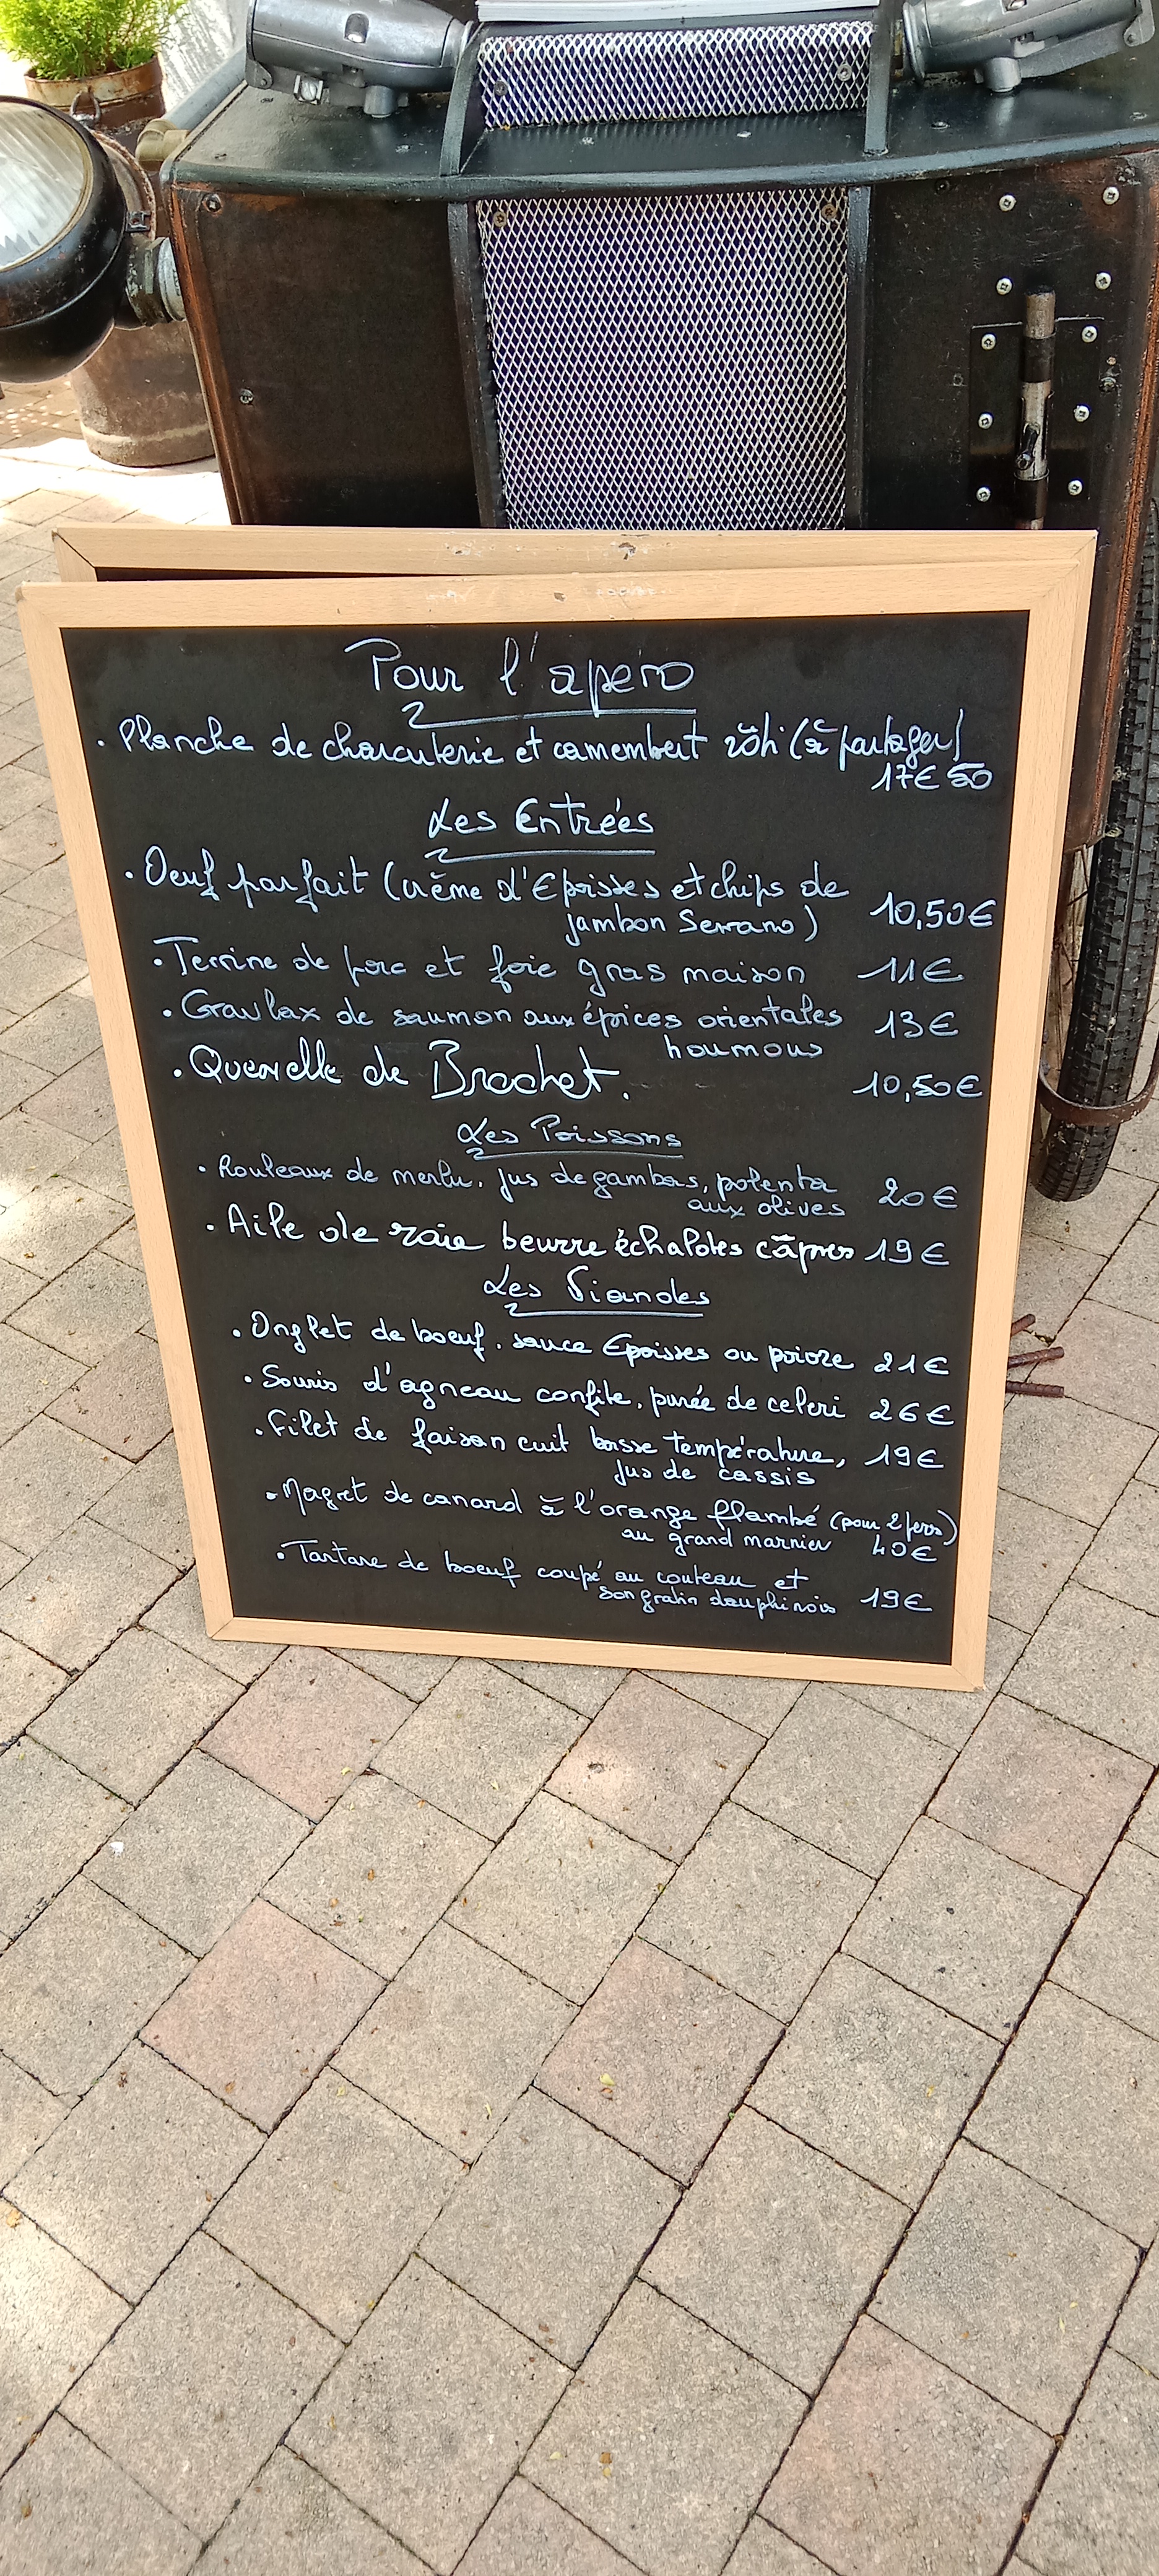 Pour l'apéro
• Planche de charcuterie et camembert rôti (à partager)
17€50
Les Entrées
• Oeuf parfait (crème d'Epoisses et chips de
jambon Serrano) 10,50€
• Terrine de porc et foie gras maison 11€
• Gravlax de saumon aux épices orientales 13€
houmous
• Quenelle de Brochet. 10,50€
Les Poissons
• Rouleaux de merlu. jus de gambas, polenta 20€
aux olives
• Aile de raie beurre échalotes câpres 19€
Les Viandes
• Onglet de boeuf. sauce Epoisses ou poivre 21€
• Souris d'agneau confite. purée de celeri 26€
• Filet de faisan cuit basse température, 19€
jus de cassis
• Magret de canard à l'orange flambé (pour 2 pers)
au grand marnier 40€
• Tartare de boeuf coupé au couteau et
son gratin dauphinois 19€